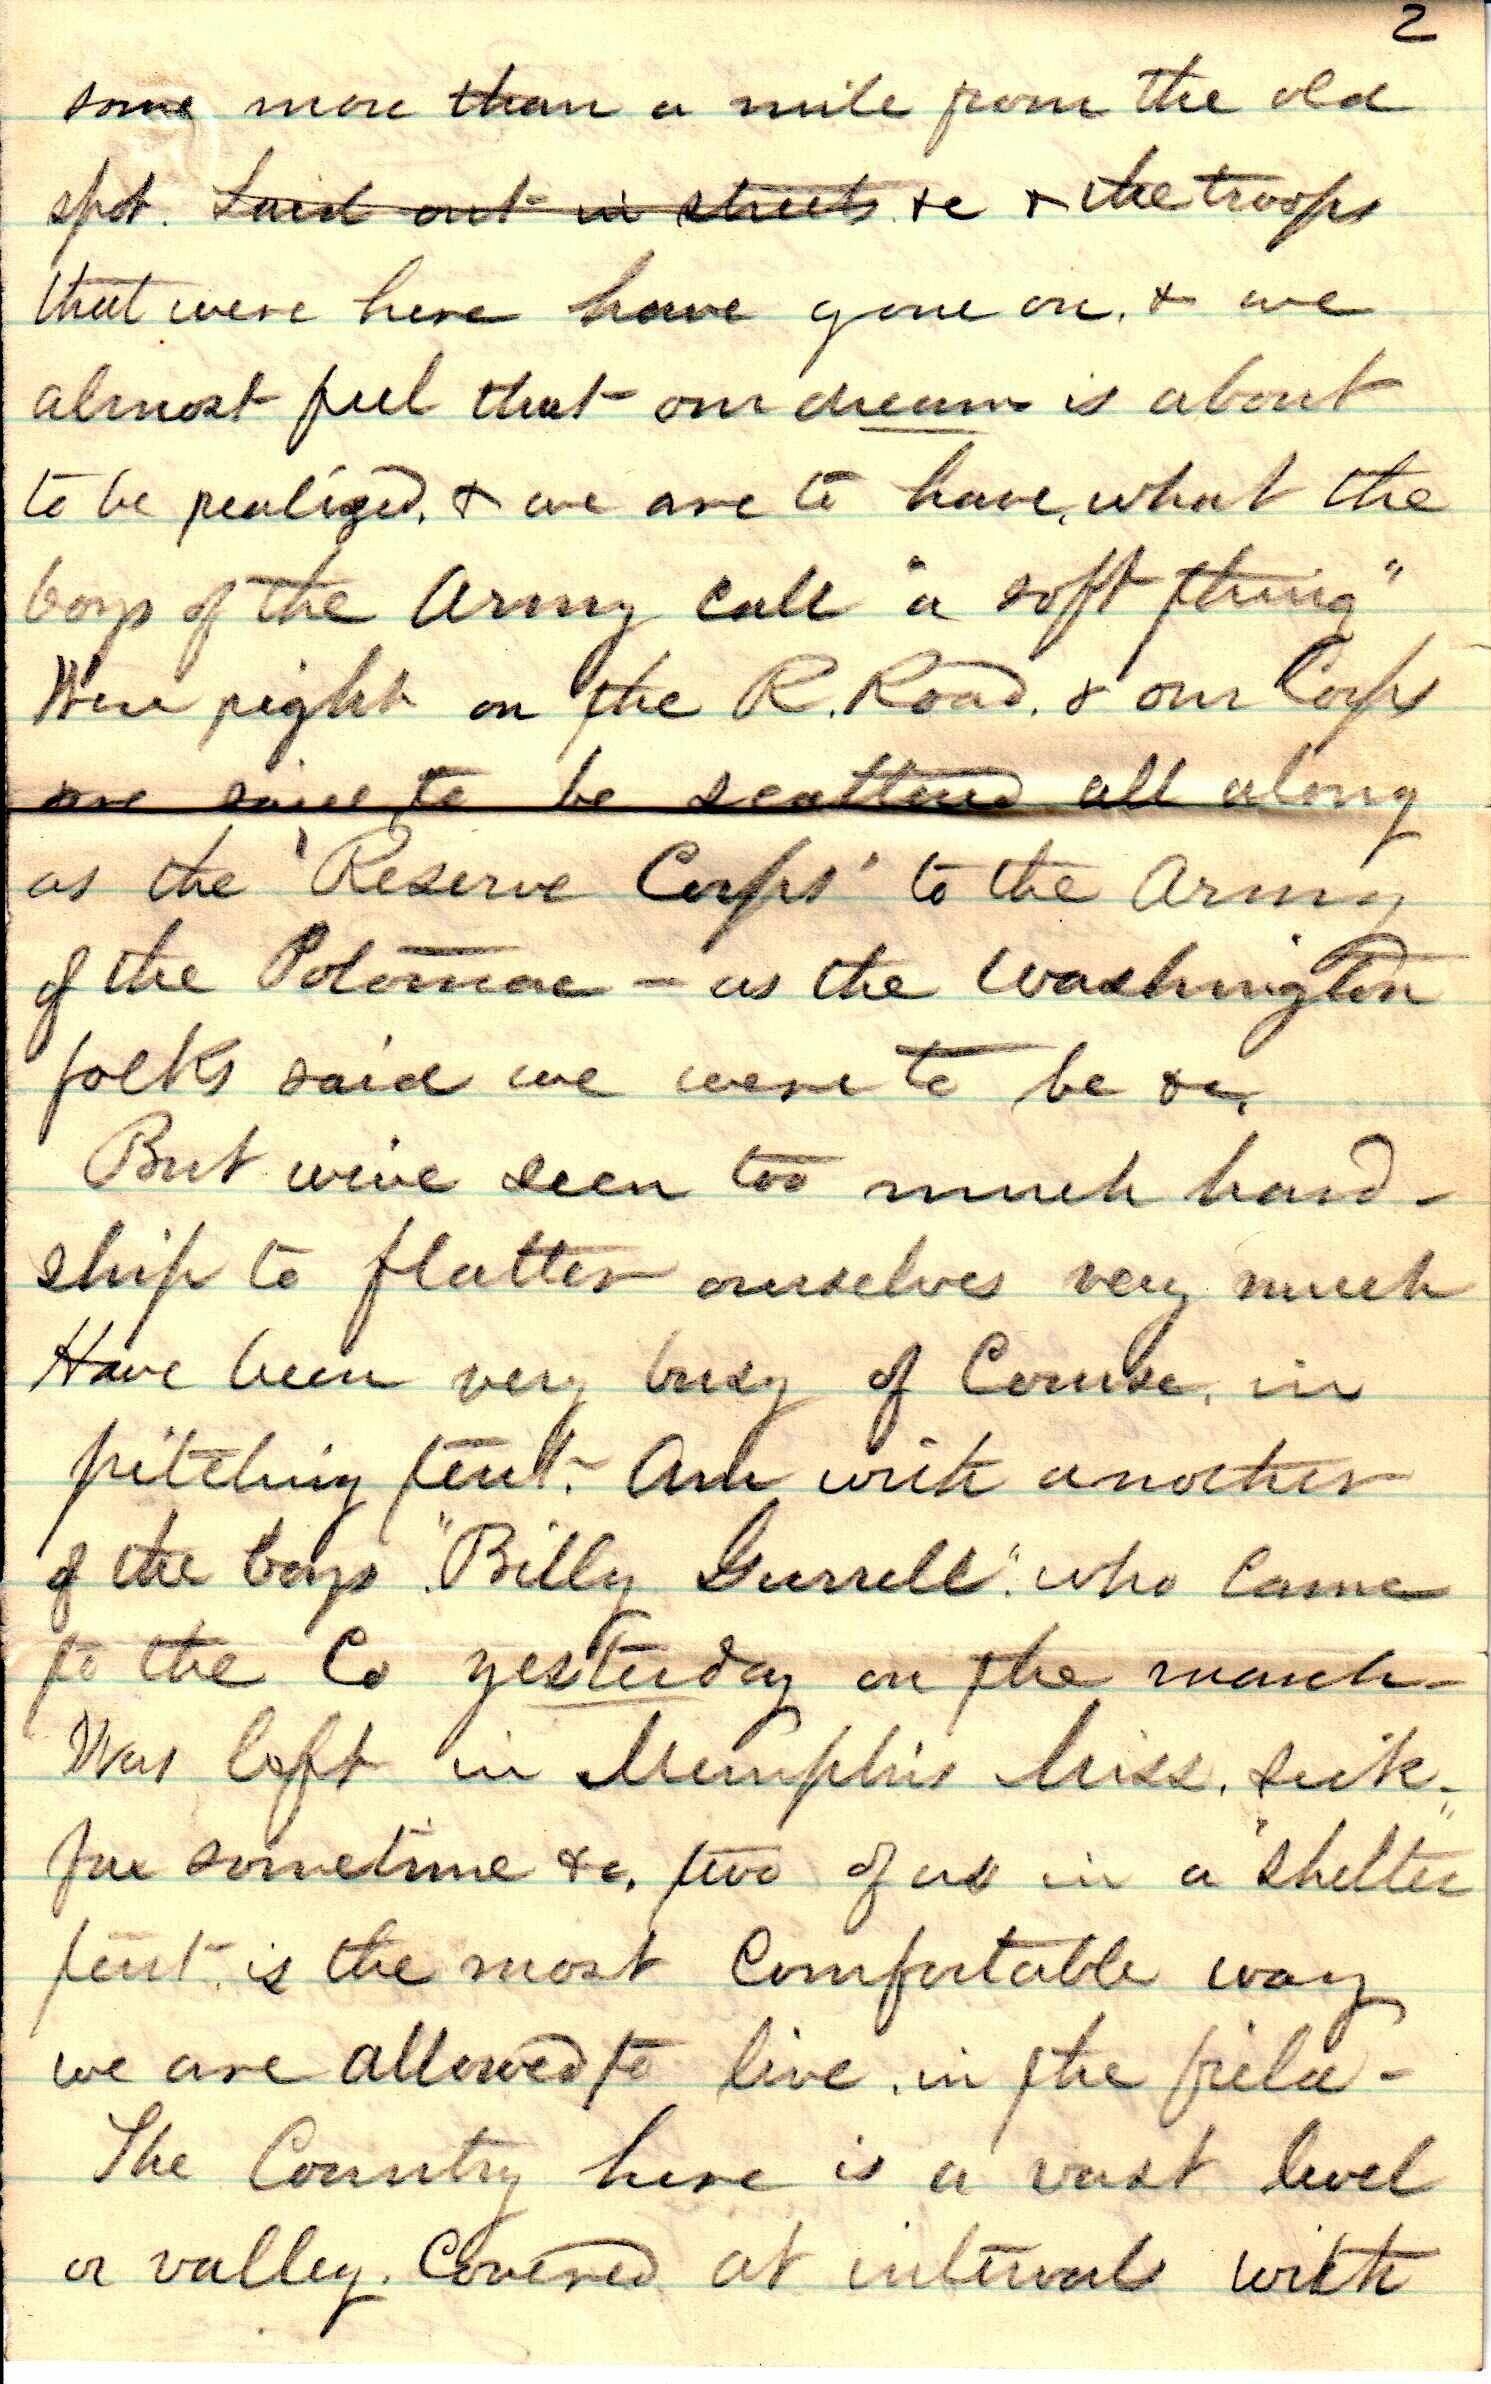 2
some more than a mile from the old
spot. Laid out in streets &c & the troops
that were here have gone on. & we
almost feel that our dream is about
to be realized. & we are to have, what the
boys of the Army call "a soft thing"
We're right on the R. Road. & our Corps
are said to be scattered all along
as the 'Reserve Corps' to the Army
of the Potomac - as the Washington
folks said we were to be &c.
But we've seen too much hard-
ship to flatter ourselves very much
Have been very busy of Course, in
pitching tent. Am with another
of the boys "Billy Gurrell". who came
to the Co yesterday on the march-
Was left in Memphis Miss. sick-
for sometime &c. two of us in a "shelter"
tent. is the most Comfortable way
we are allowed to live. in the field-
The Country here is a vast level
or valley. Covered at intervals with